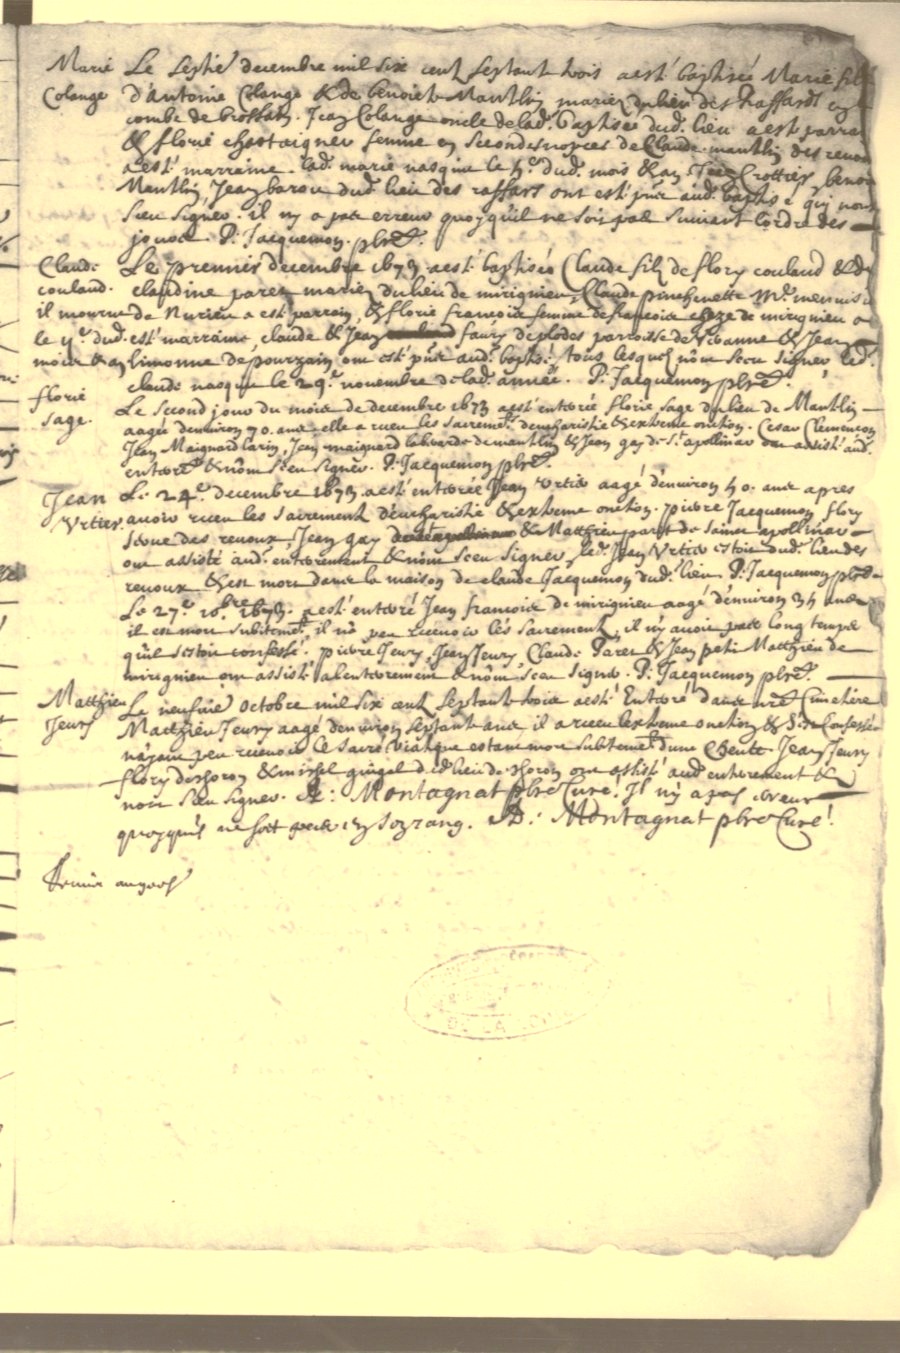 Marie Le septie decembre mil six cent septant trois a esté baptisée Marie fille
Colange d'antoine Colange & de benoiete Mantlin mariez du lieu des Raffards
combe de brossatz. Jean Colange oncle de lad. baptisée dud. lieu a esté parrain
& florie chastaigner femme en secondes nopces de Claude mantlin des renoux
a esté marraine. lad. marie nasquit le 4e dud. mois & an Jean Crottier, benoit
Mantlin, Jean barou dud. lieu des raffars ont esté pnt aud. baptisé qui nont
sceu signer. il ny a pas erreur quoyquil ne soit pas suivant l'ordre des
jours. P. Jacquemon pbre.
Claude Le premier decembre 1673 a esté baptisé Claude filz de flory couland & de
couland. claudine parez mariez du lieu de mirignieu, Claude pinchenette Mre menuisier
il mourut de Nurieu a est parrain, & florie francoise femme de francois cheze de mirignieu a
le 4e dud. esté marraine, claude & Jean faury de plodes parroisse de & Jean
mois & an limonne de pourzain ont esté pnt aud. baptisé tous lesquels nont sceu signer led.
claude nasquit le 29e novembre de lad. année. P. Jacquemon pbre.
florie Le second jour du mois de decembre 1673 a esté enterrée florie sage du lieu de Mantlin
sage. aagée denviron 70. ans elle a receu les sacremts deucharistie & extreme onction. Cesar Clemencon
Jean Maignard Carin, Jean maignard laboards de mantlin & Jean gay de st apolinar ont assisté aud.
enterrem & nont sceu signer. P. Jacquemon pbre.
Jean Le 24e decembre 1673 a esté enterrée Jean Vrtier aagé denviron 40. ans apres
Vrtier. avoir receu les sacrement deucharistie & extreme onction. pierre Jacquemon flory
seve des renoux, Jean gay & Matthieu paret de sainct apollinar
ont assisté aud. enterrement & nont sceu signer, led. Jean Vrtier estoit dud. lieu des
renoux & est mort dans la maison de claude Jacquemon dud. lieu P. Jacquemon pbre.
Le 27e 10bre 1673. a esté enterré Jean francois de mirignieu aagé denviron 34 ans
il est mort subitemt, il na peu recevoir les sacrement, il ny avoit pas long temps
quil sestoit confessé. pierre Jeury, Jean Jeury, Claude Paret & Jean petit Matthieu de
mirignieu ont assisté a lenterrement & nont sceu signer. P. Jacquemon pbre.
Matthieu Le neufvie octobre mil six cent septant trois a esté Enterré dans nre Cimetiere
Jeury Matthieu Jeury aagé denviron septant ans, il a receu lextreme onction & sest Confessé
nayant peu recevoir le sacré viatique estant mort subitemt dune Cheute. Jean Jeury
flory deshoron & missel gingel dud. lieu de shoron ont assisté aud. enterrement &
nont sceu signer. D: Montagnat pbre Curé. Il ny a pas erreur
quoyquil ne soit pas en son rang. D: Montagnat pbre Curé.
DE LA